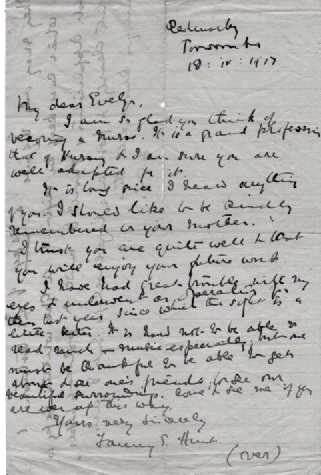 Toowoomba
18 : IV : 1917
My dear Evelyn,
I am so glad you think of
becoming a Nurse. It is a grand profession
that of Nursing & I am sure you are
well adapted for it.
It is long since I heard anything
of you. I should like to be kindly
remembered to your mother.
I trust you are quite well & that
you will enjoy your future work
I have had great trouble with my
eyes & underwent an operation
this last year since which the sight is a
little better. It is hard not to be able to
read much – music especially, but one
must be thankful to be able to get
about & see one's friends, & see our
beautiful surroundings. Come & see me if you
are ever up this way.
Yours very sincerely
(over)